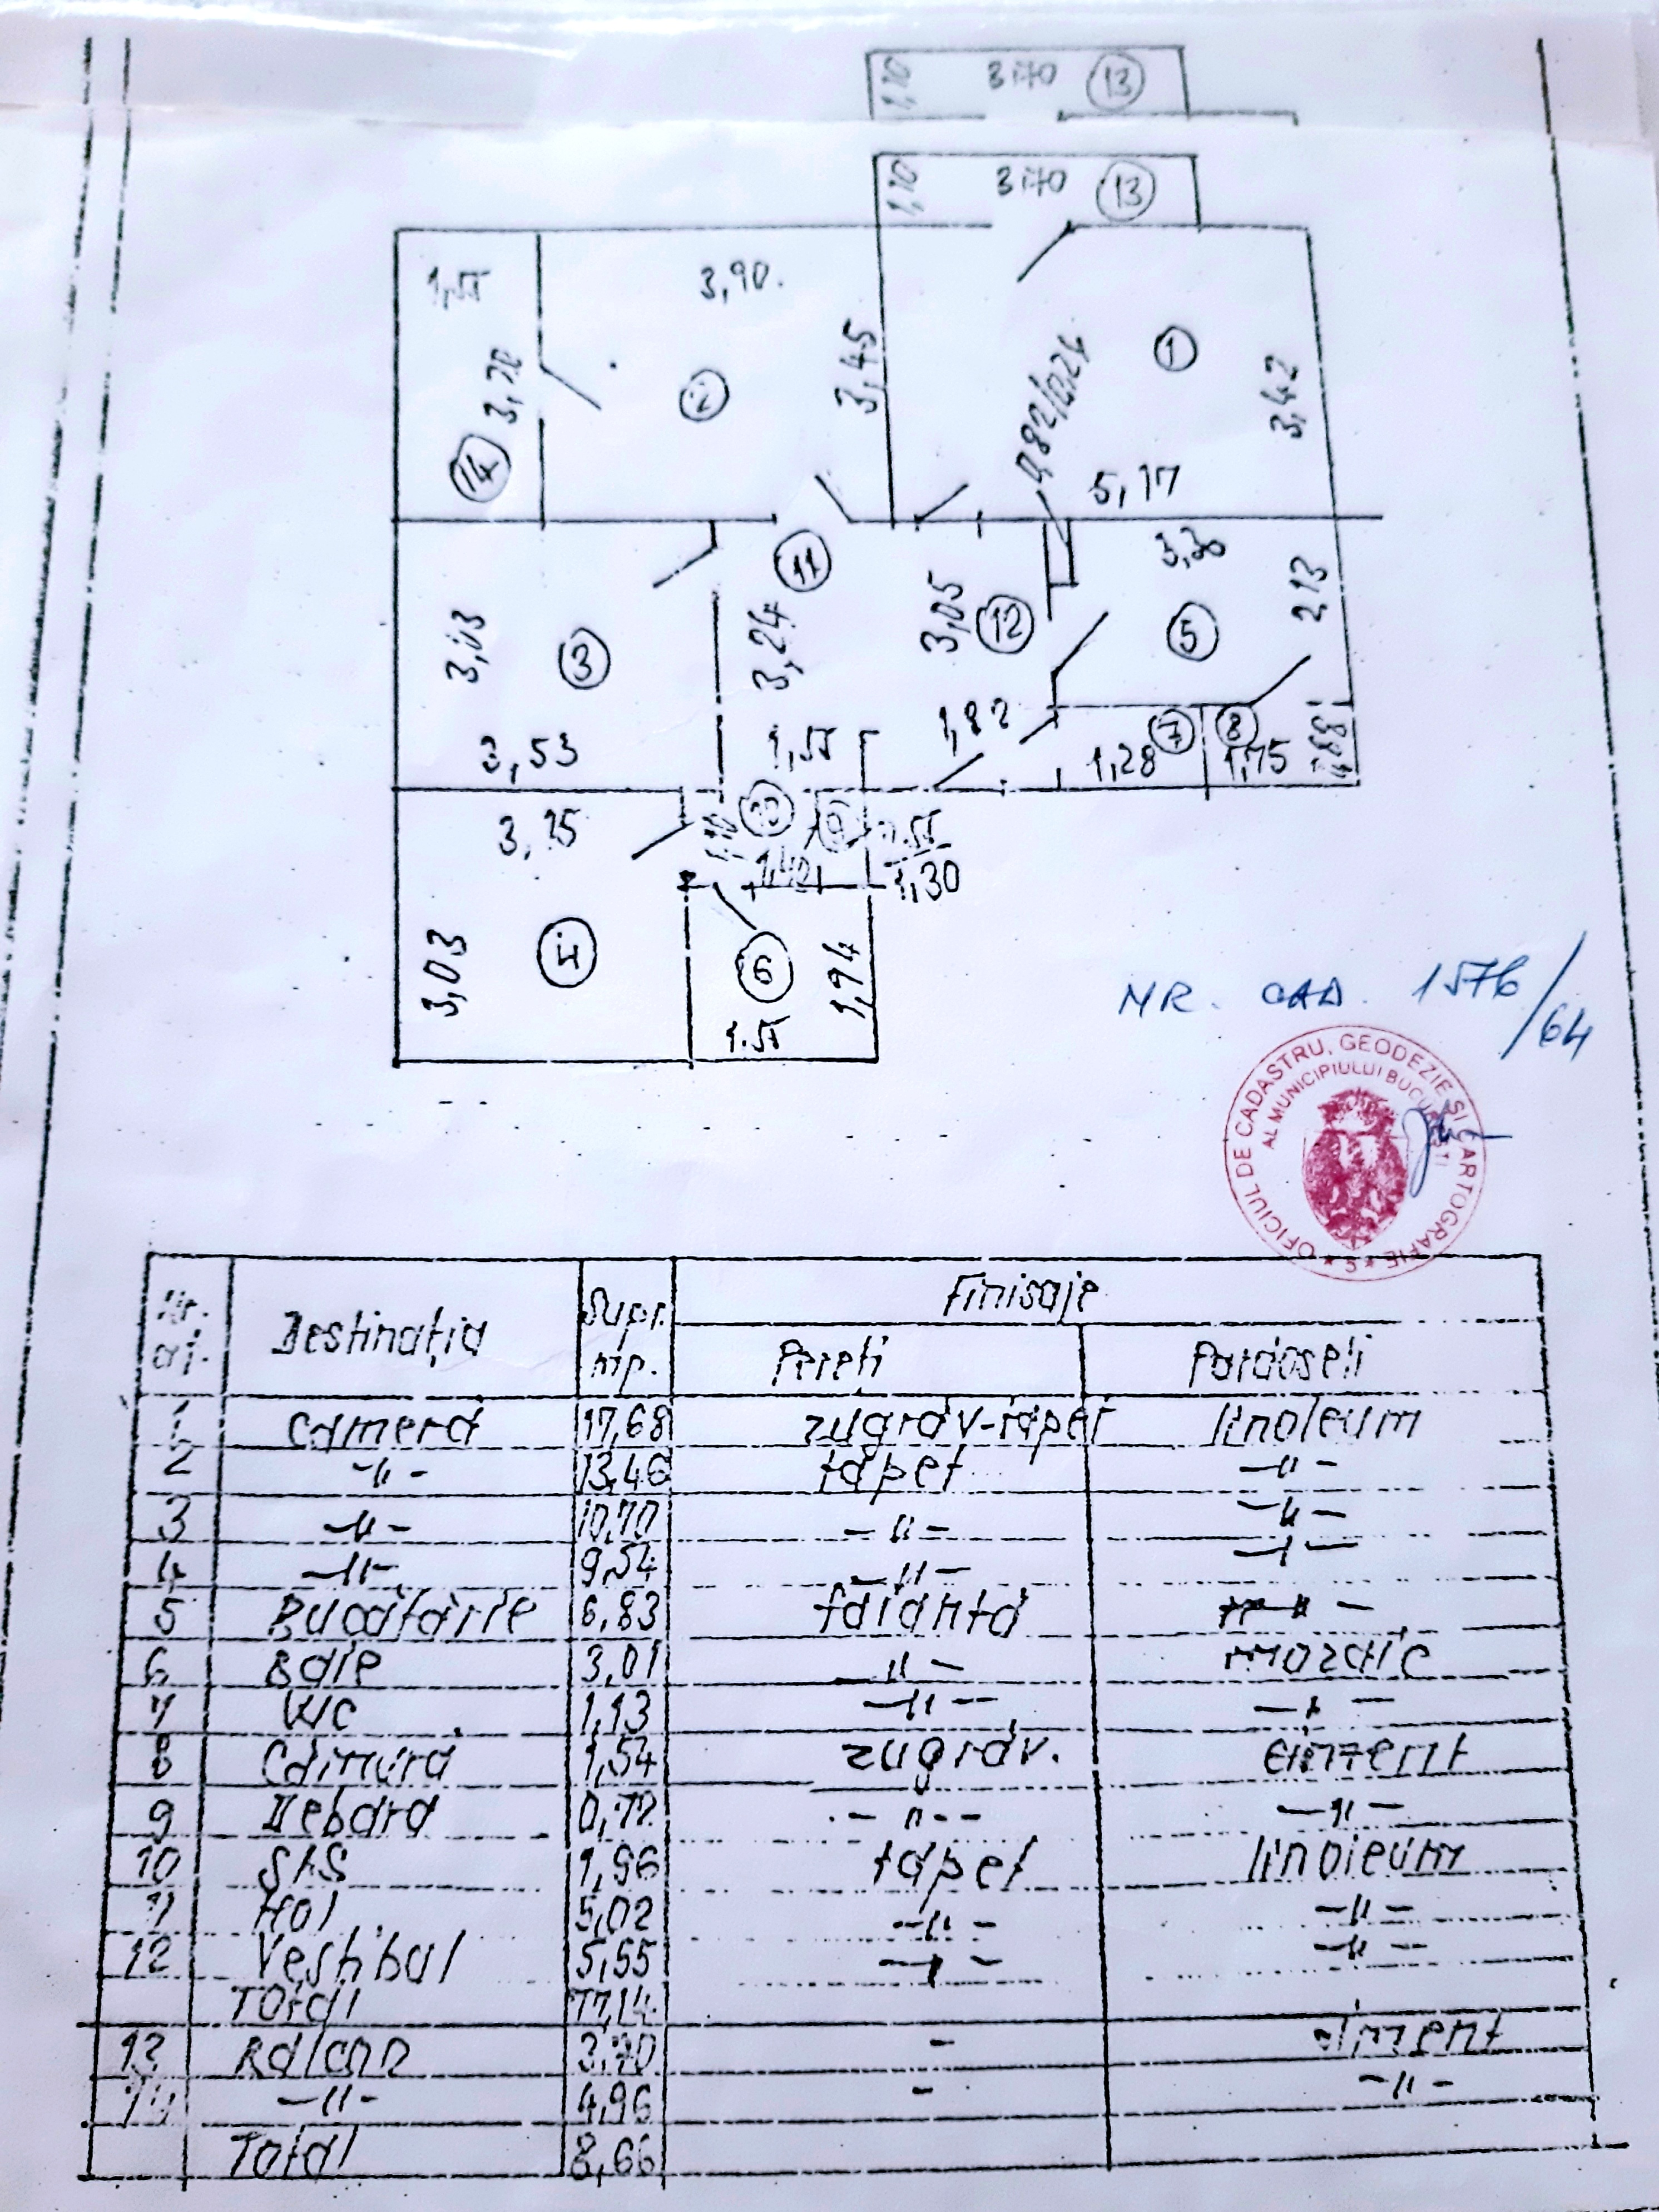 3,70 13
1,10
3,70 13
1,10
1,55
3,90
3,45
2
1
3,42
14
5,17
11
3,30
2,13
3,05
12
5
3,03
3
3,24
3,53
1,55
1,82
7
8
1,28
1,75
3,15
10
9
1,30
3,03
4
6
1,94
1.55
NR. CAD. 1576/64
OFICIUL DE CADASTRU, GEODEZIE ȘI CARTOGRAFIE
AL MUNICIPIULUI BUCUREȘTI
* 5 *
Nr. Destinația Supr. Finisaje
mp. Pereți Pardoseli
1 Cameră 17,68 zugrăv-tapet linoleum
2 -"- 13,46 tapet -"-
3 -"- 10,70 -"- -"-
4 -"- 9,54 -"- -"-
5 Bucătărie 6,83 faianță -"-
6 Baie 3,01 -"- mozaic
7 WC 1,13 -"- -"-
8 Cămără 1,54 zugrăv. ciment
9 Debara 0,72 -"- -"-
10 SAS 1,96 tapet linoleum
11 Hol 5,02 -"- -"-
12 Vestibul 5,55 -"- -"-
Total 77,14
13 Balcon 3,70 - ciment
14 -"- 4,96 - -"-
Total 8,66